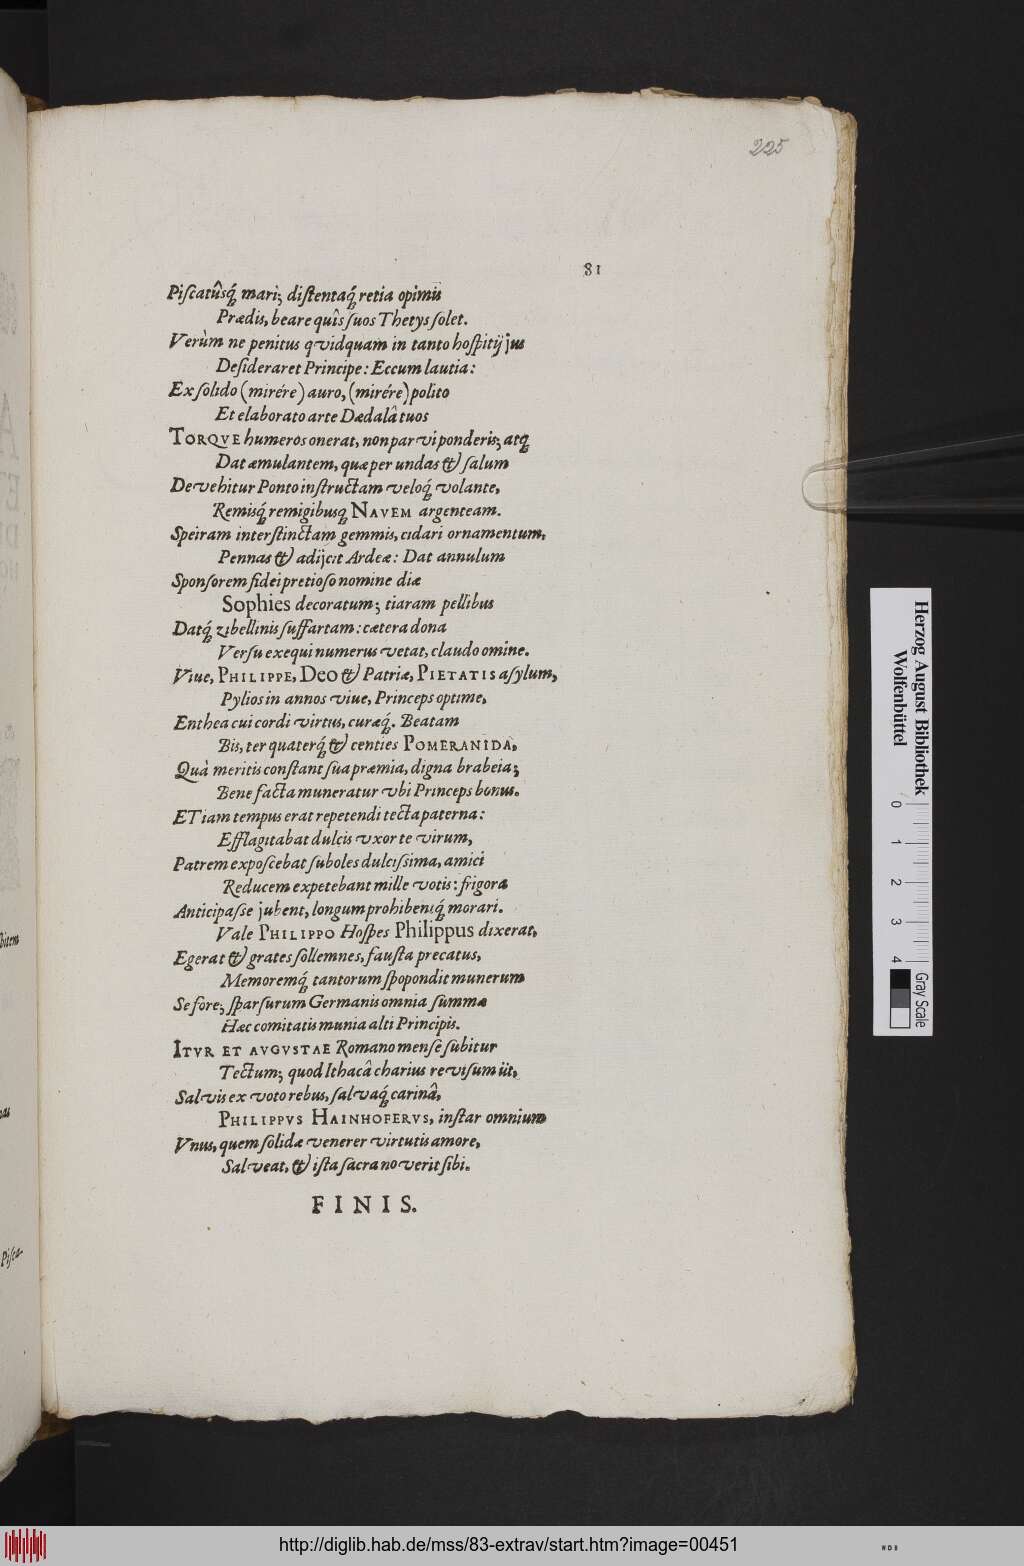 225
81
Piſcatûsq́; mari; diſtentaq́; retia opimis
Prædis, beare quîs ſuos Thetys ſolet.
Verùm ne penitus qvidquam in tanto hoſpitij jus
Deſideraret Principe: Eccum lautia:
Ex ſolido (mirére) auro, (mirére) polito
Et elaborato arte Dædalâ tuos
TORQVE humeros onerat, non par vi ponderis; atq;
Dat æmulantem, quæ per undas & ſalum
Devehitur Ponto inſtructam veloq́; volante,
Remisq́; remigibusq; NAVEM argenteam.
Speiram interſtinctam gemmis, cidari ornamentum,
Pennas & adijcit Ardeæ: Dat annulum
Sponſorem fidei pretioſo nomine diæ
Sophies decoratum; tiaram pellibus
Datq́; zibellinis ſuffartam: cætera dona
Verſu exequi numerus vetat, claudo omine.
Viue, PHILIPPE, Deo & Patriæ, PIETATIS aſylum,
Pylios in annos viue, Princeps optime,
Enthea cui cordi virtus, curæq́;. Beatam
Bis, ter quaterq́; & centies POMERANIDA,
Quà meritis conſtant ſua præmia, digna brabeia;
Bene facta muneratur vbi Princeps bonus.
ETiam tempus erat repetendi tecta paterna:
Efflagitabat dulcis vxor te virum,
Patrem expoſcebat ſuboles dulciſsima, amici
Reducem expetebant mille votis: frigora
Anticipaſse jubent, longum prohibentq́; morari.
Vale PHILIPPO Hoſpes Philippus dixerat,
Egerat & grates ſollemnes, fauſta precatus,
Memoremq́; tantorum ſpopondit munerum
Se fore; ſparſurum Germanis omnia ſummæ
Hæc comitatis munia alti Principis.
ITVR ET AVGVSTAE Romano menſe ſubitur
Tectum; quod Ithacâ charius reviſum iit,
Salvis ex voto rebus, ſalvaq́; carinâ,
PHILIPPVS HAINHOFERVS, inſtar omnium
Vnus, quem ſolidæ venerer virtutis amore,
Salveat, & iſta ſacra noverit ſibi.
FINIS.
Piſca-
Herzog August Bibliothek
Wolfenbüttel
0 1 2 3 4
Gray Scale
http://diglib.hab.de/mss/83-extrav/start.htm?image=00451